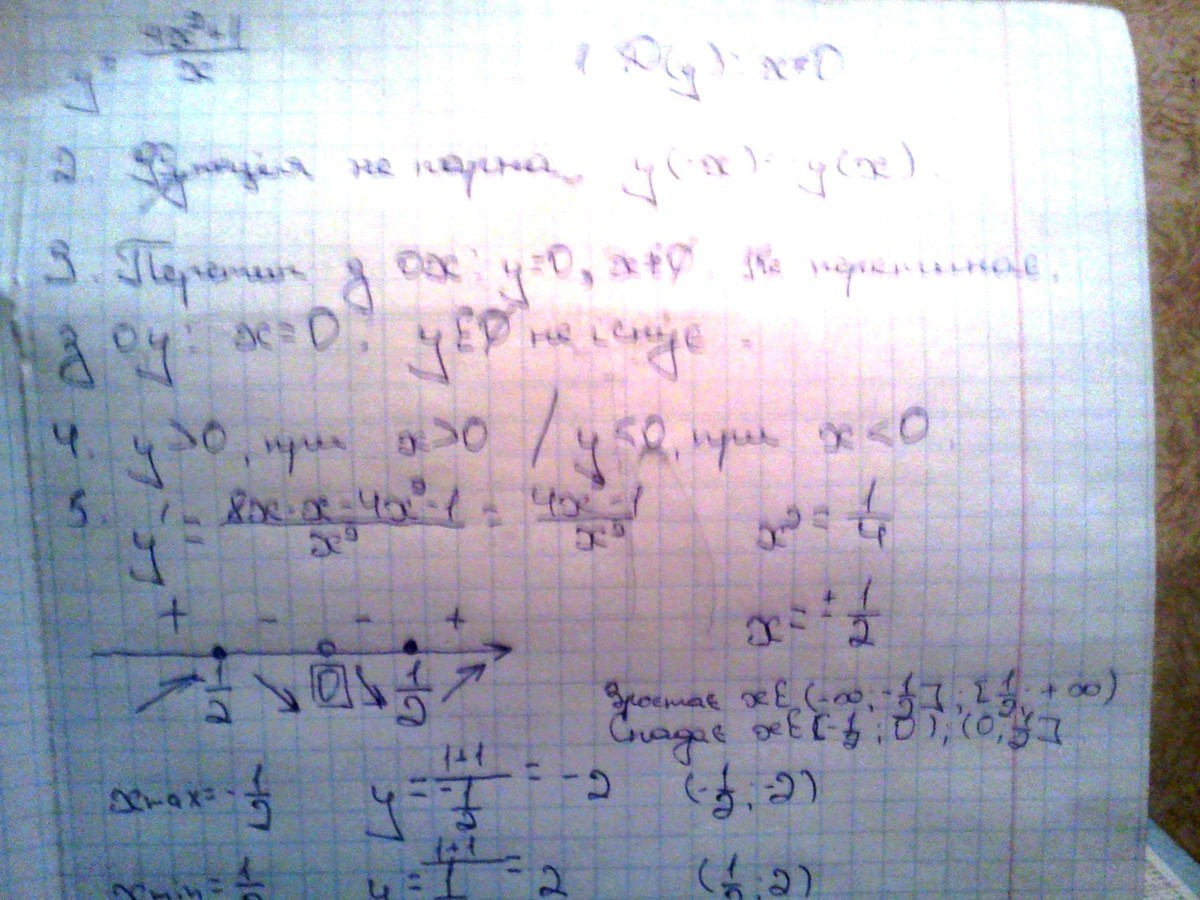 y = (4x²+1)/x    1. D(y): x≠0
2. Функція не парна, y(-x) = -y(x).
3. Перетин з OX: y=0, x≠0. Не перетинає.
з OY: x=0; y∈∅ не існує.
4. y>0, при x>0 / y<0, при x<0.
5. y' = (8x·x-4x²-1)/x² = (4x²-1)/x²    x² = 1/4
+ - - +    x = ±1/2
-1/2 0 1/2    Зростає x∈(-∞; -1/2]; [1/2; +∞)
Спадає x∈[-1/2; 0); (0; 1/2]
xmax = -1/2    y = (1+1)/(-1/2) = -2    (-1/2; -2)
xmin = 1/2    y = (1+1)/1 = 2    (1/2; 2)